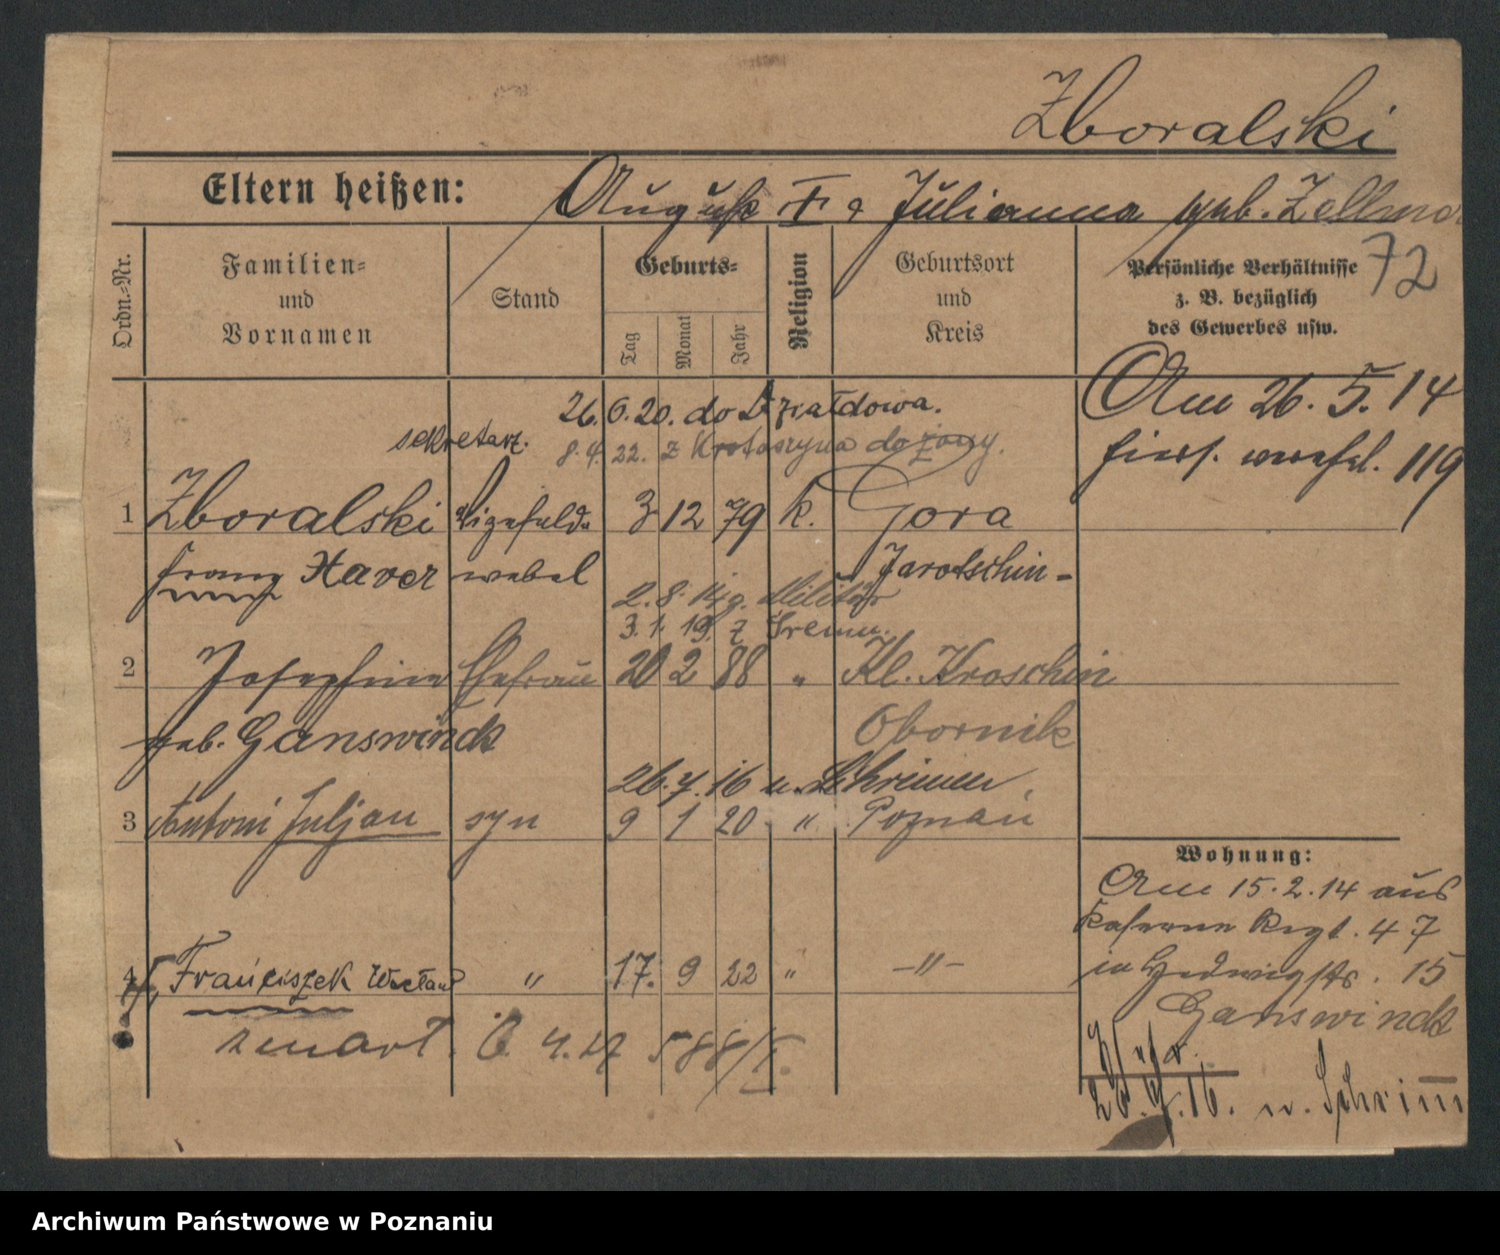 Zboralski
Eltern heißen: August † & Julianna geb. Zellmer
Ordn.-Nr.
Familien- und Vornamen
Stand
Geburts-
Tag
Monat
Jahr
Religion
Geburtsort und Kreis
Persönliche Verhältnisse
z. B. bezüglich
des Gewerbes usw.
72
26. 6. 20. do Działdowa.
sekretarz. 8. 4. 22. z Krotoszyna do żony.
Am 26. 5. 14
119
1 Zboralski Vizefeld- 3 12 79 k. Gora
Franz Xaver webel Jarotschin-
2. 8. 14 g. Militär
3. 1. 19. z Śremu.
2 Josephine Ehefrau 20 2 88 " Kl. Kroschin
geb. Ganswindt Obornik
26. 7. 16 n. Schrimm
3 Antoni Juljan syn 9 1 20 " Poznań
4 Franciszek Wacław " 17. 9 22 " -"-
zmarł. 4. 27 588/I.
Wohnung:
Am 15. 2. 14 aus
Kaserne Regt. 47
in Hedwigstr. 15
Ganswindt
26. 7. 16. n. Schrimm
Archiwum Państwowe w Poznaniu